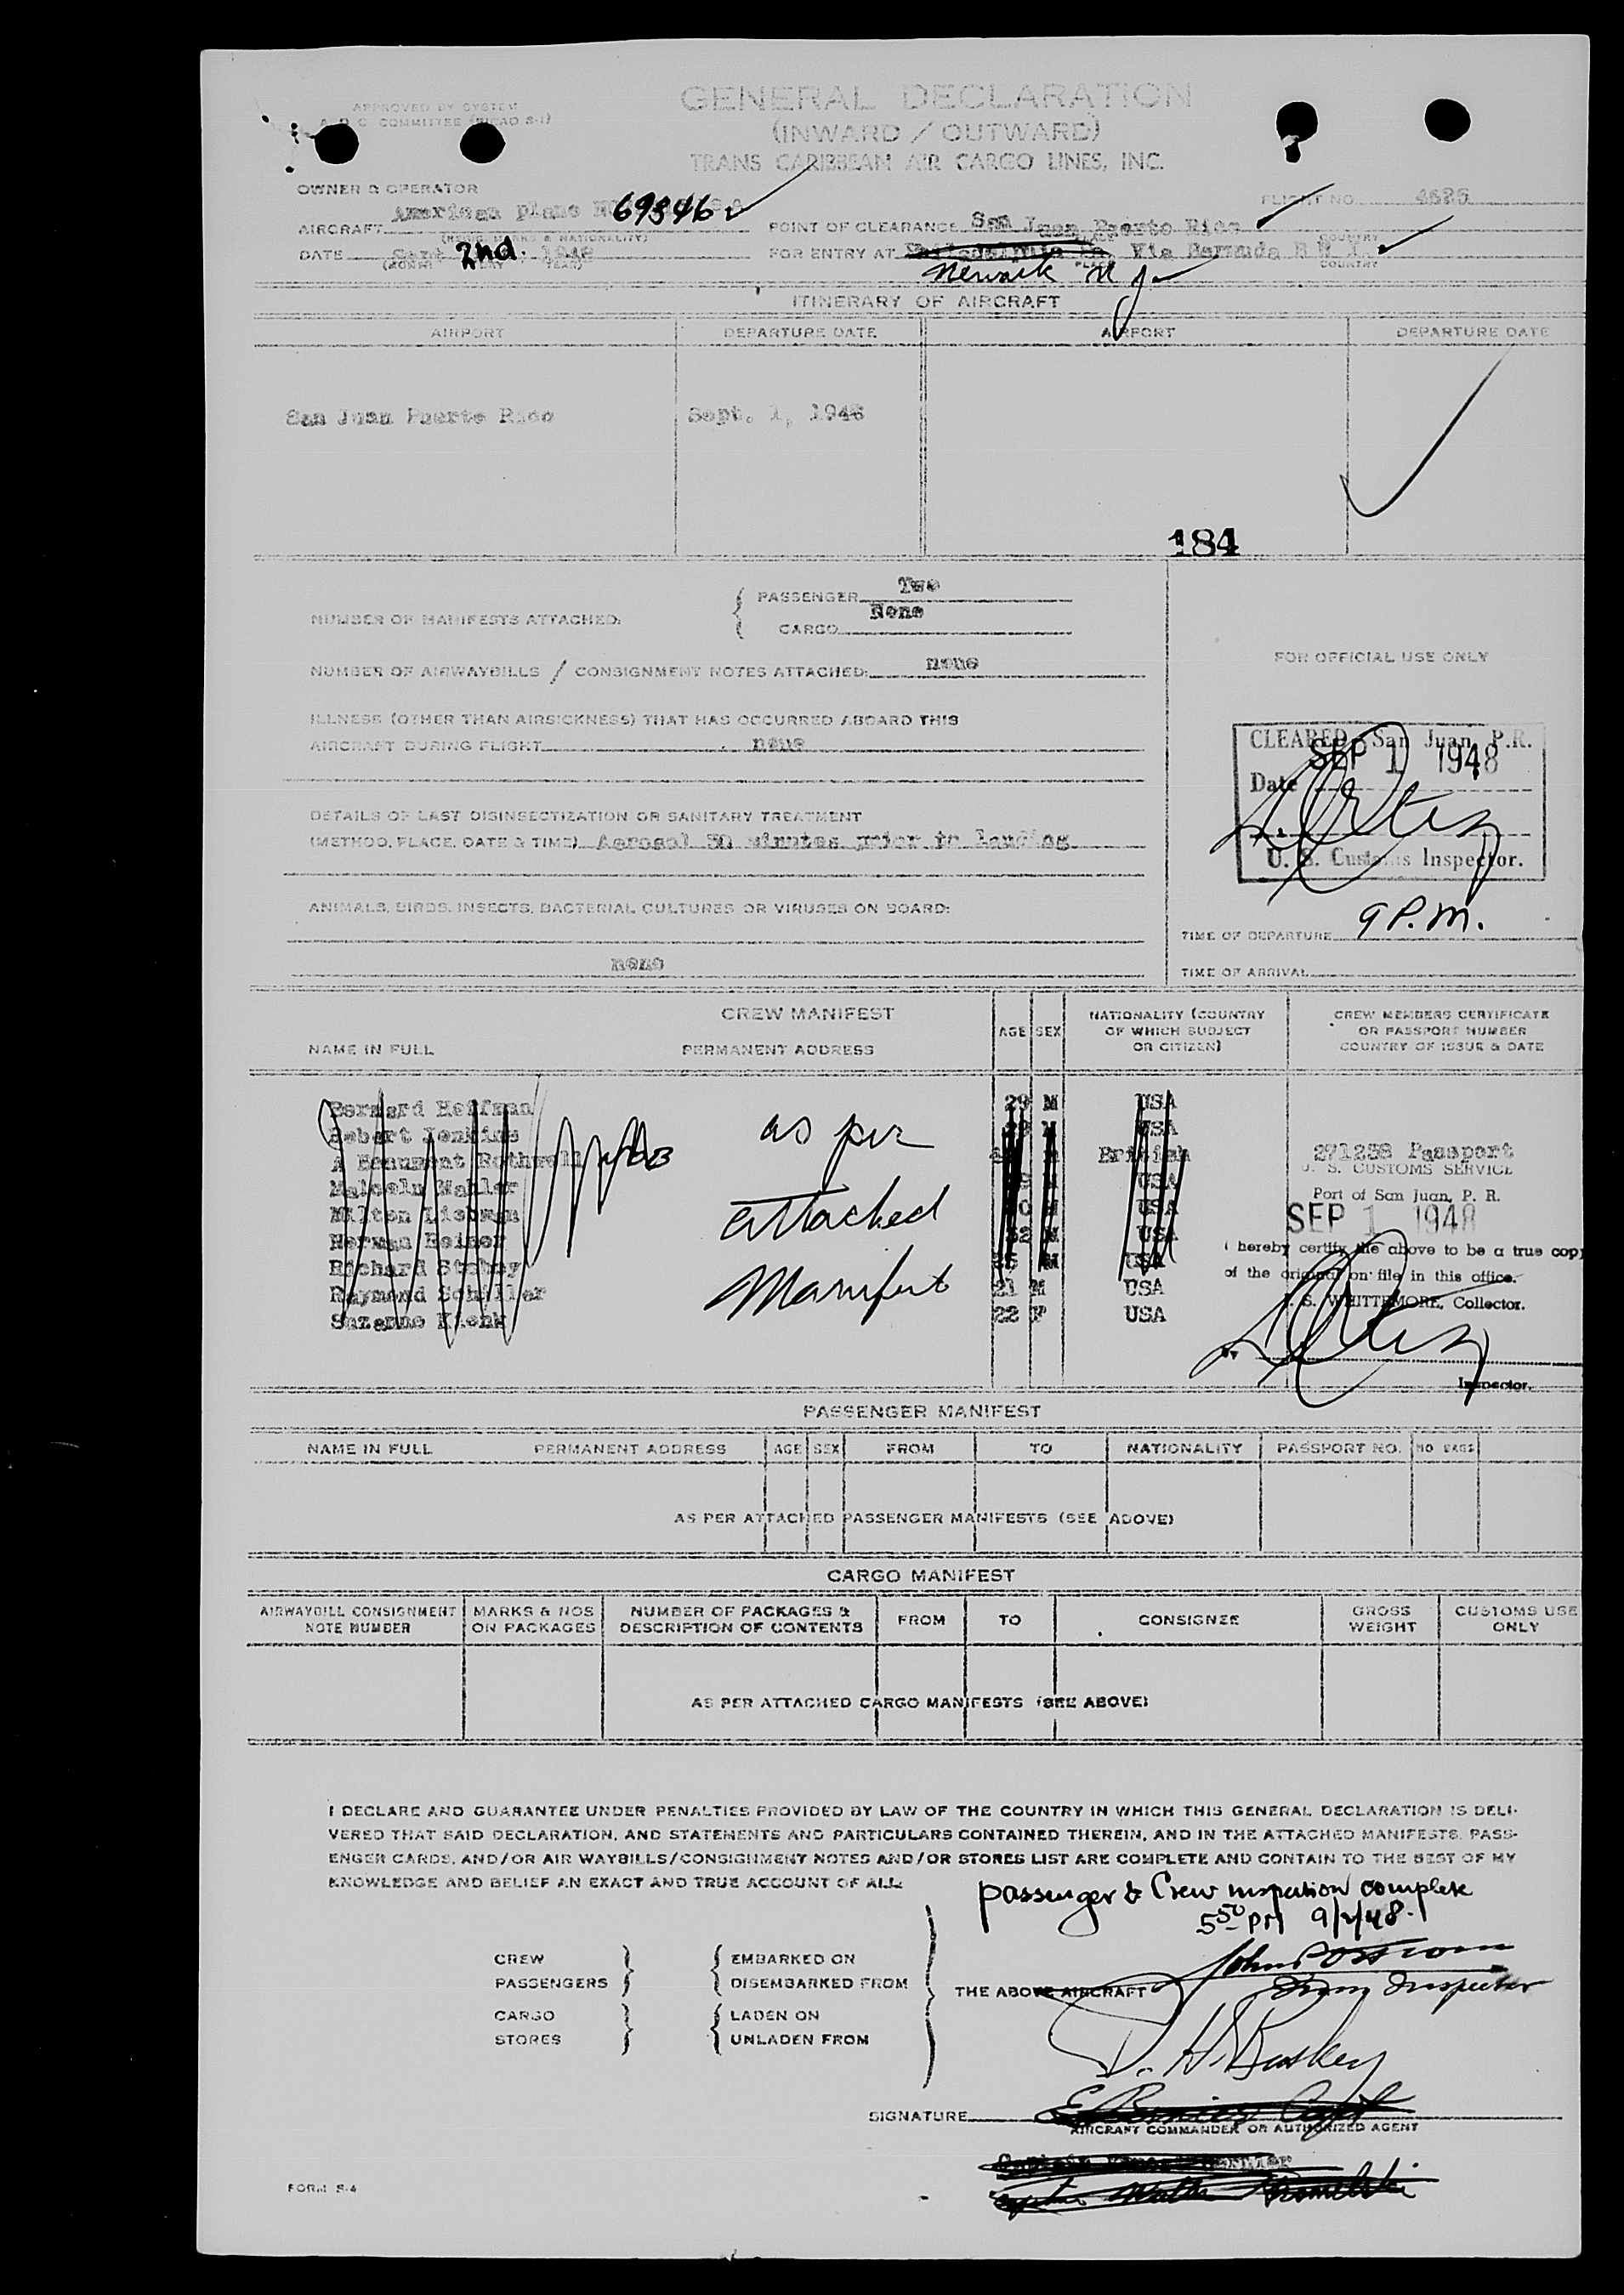 APPROVED BY SYSTEM
COMMITTEE
GENERAL DECLARATION
(INWARD / OUTWARD)
TRANS CARIBBEAN AIR CARGO LINES, INC.
OWNER & OPERATOR
FLIGHT NO.
AIRCRAFT American plane 69346
(REGIS. MARKS & NATIONALITY)
POINT OF CLEARANCE San Juan Puerto Rico
COUNTRY
DATE Sept 2nd. 1948
(MONTH DAY YEAR)
FOR ENTRY AT Philadelphia Pa Via Bermuda
PLACE COUNTRY
Newark N J
ITINERARY OF AIRCRAFT
AIRPORT DEPARTURE DATE AIRPORT DEPARTURE DATE
San Juan Puerto Rico Sept. 1, 1948
184
NUMBER OF MANIFESTS ATTACHED: PASSENGER Two
CARGO None
NUMBER OF AIRWAYBILLS / CONSIGNMENT NOTES ATTACHED: none
FOR OFFICIAL USE ONLY
ILLNESS (OTHER THAN AIRSICKNESS) THAT HAS OCCURRED ABOARD THIS
AIRCRAFT DURING FLIGHT none
CLEARED, San Juan, P.R.
SEP 1 1948
Date
U. S. Customs Inspector.
DETAILS OF LAST DISINSECTIZATION OR SANITARY TREATMENT
(METHOD, PLACE, DATE & TIME) Aerosol 30 minutes prior to landing
ANIMALS, BIRDS, INSECTS, BACTERIAL CULTURES OR VIRUSES ON BOARD:
none
TIME OF DEPARTURE 9 P.M.
TIME OF ARRIVAL
CREW MANIFEST
NAME IN FULL PERMANENT ADDRESS AGE SEX NATIONALITY (COUNTRY OF WHICH SUBJECT OR CITIZEN) CREW MEMBERS CERTIFICATE OR PASSPORT NUMBER COUNTRY OF ISSUE & DATE
Bernard Hoffman 29 M USA
Robert Jenkins M USA
A Beaumont Rothwell British 271238 Passport
Malcolm Wahler USA
Milton M USA
Herman 32 M USA
Richard M USA
Raymond Schiller 21 M USA
Suzanne 22 F USA
as per
attached
Manifest
U. S. CUSTOMS SERVICE
Port of San Juan, P. R.
SEP 1 1948
I hereby certify the above to be a true copy
of the original on file in this office.
S. WHITTEMORE, Collector.
By
Inspector.
PASSENGER MANIFEST
NAME IN FULL PERMANENT ADDRESS AGE SEX FROM TO NATIONALITY PASSPORT NO. NO BAGS
AS PER ATTACHED PASSENGER MANIFESTS (SEE ABOVE)
CARGO MANIFEST
AIRWAYBILL CONSIGNMENT NOTE NUMBER MARKS & NOS ON PACKAGES NUMBER OF PACKAGES & DESCRIPTION OF CONTENTS FROM TO CONSIGNEE GROSS WEIGHT CUSTOMS USE ONLY
AS PER ATTACHED CARGO MANIFESTS (SEE ABOVE)
I DECLARE AND GUARANTEE UNDER PENALTIES PROVIDED BY LAW OF THE COUNTRY IN WHICH THIS GENERAL DECLARATION IS DELI-
VERED THAT SAID DECLARATION, AND STATEMENTS AND PARTICULARS CONTAINED THEREIN, AND IN THE ATTACHED MANIFESTS, PASS-
ENGER CARDS, AND/OR AIR WAYBILLS/CONSIGNMENT NOTES AND/OR STORES LIST ARE COMPLETE AND CONTAIN TO THE BEST OF MY
KNOWLEDGE AND BELIEF AN EXACT AND TRUE ACCOUNT OF ALL:
passenger & Crew inspection complete
5 50 PM 9/2/48.
CREW EMBARKED ON
PASSENGERS DISEMBARKED FROM
THE ABOVE AIRCRAFT
Inspector
CARGO LADEN ON
STORES UNLADEN FROM
SIGNATURE
AIRCRAFT COMMANDER OR AUTHORIZED AGENT
FORM S-4